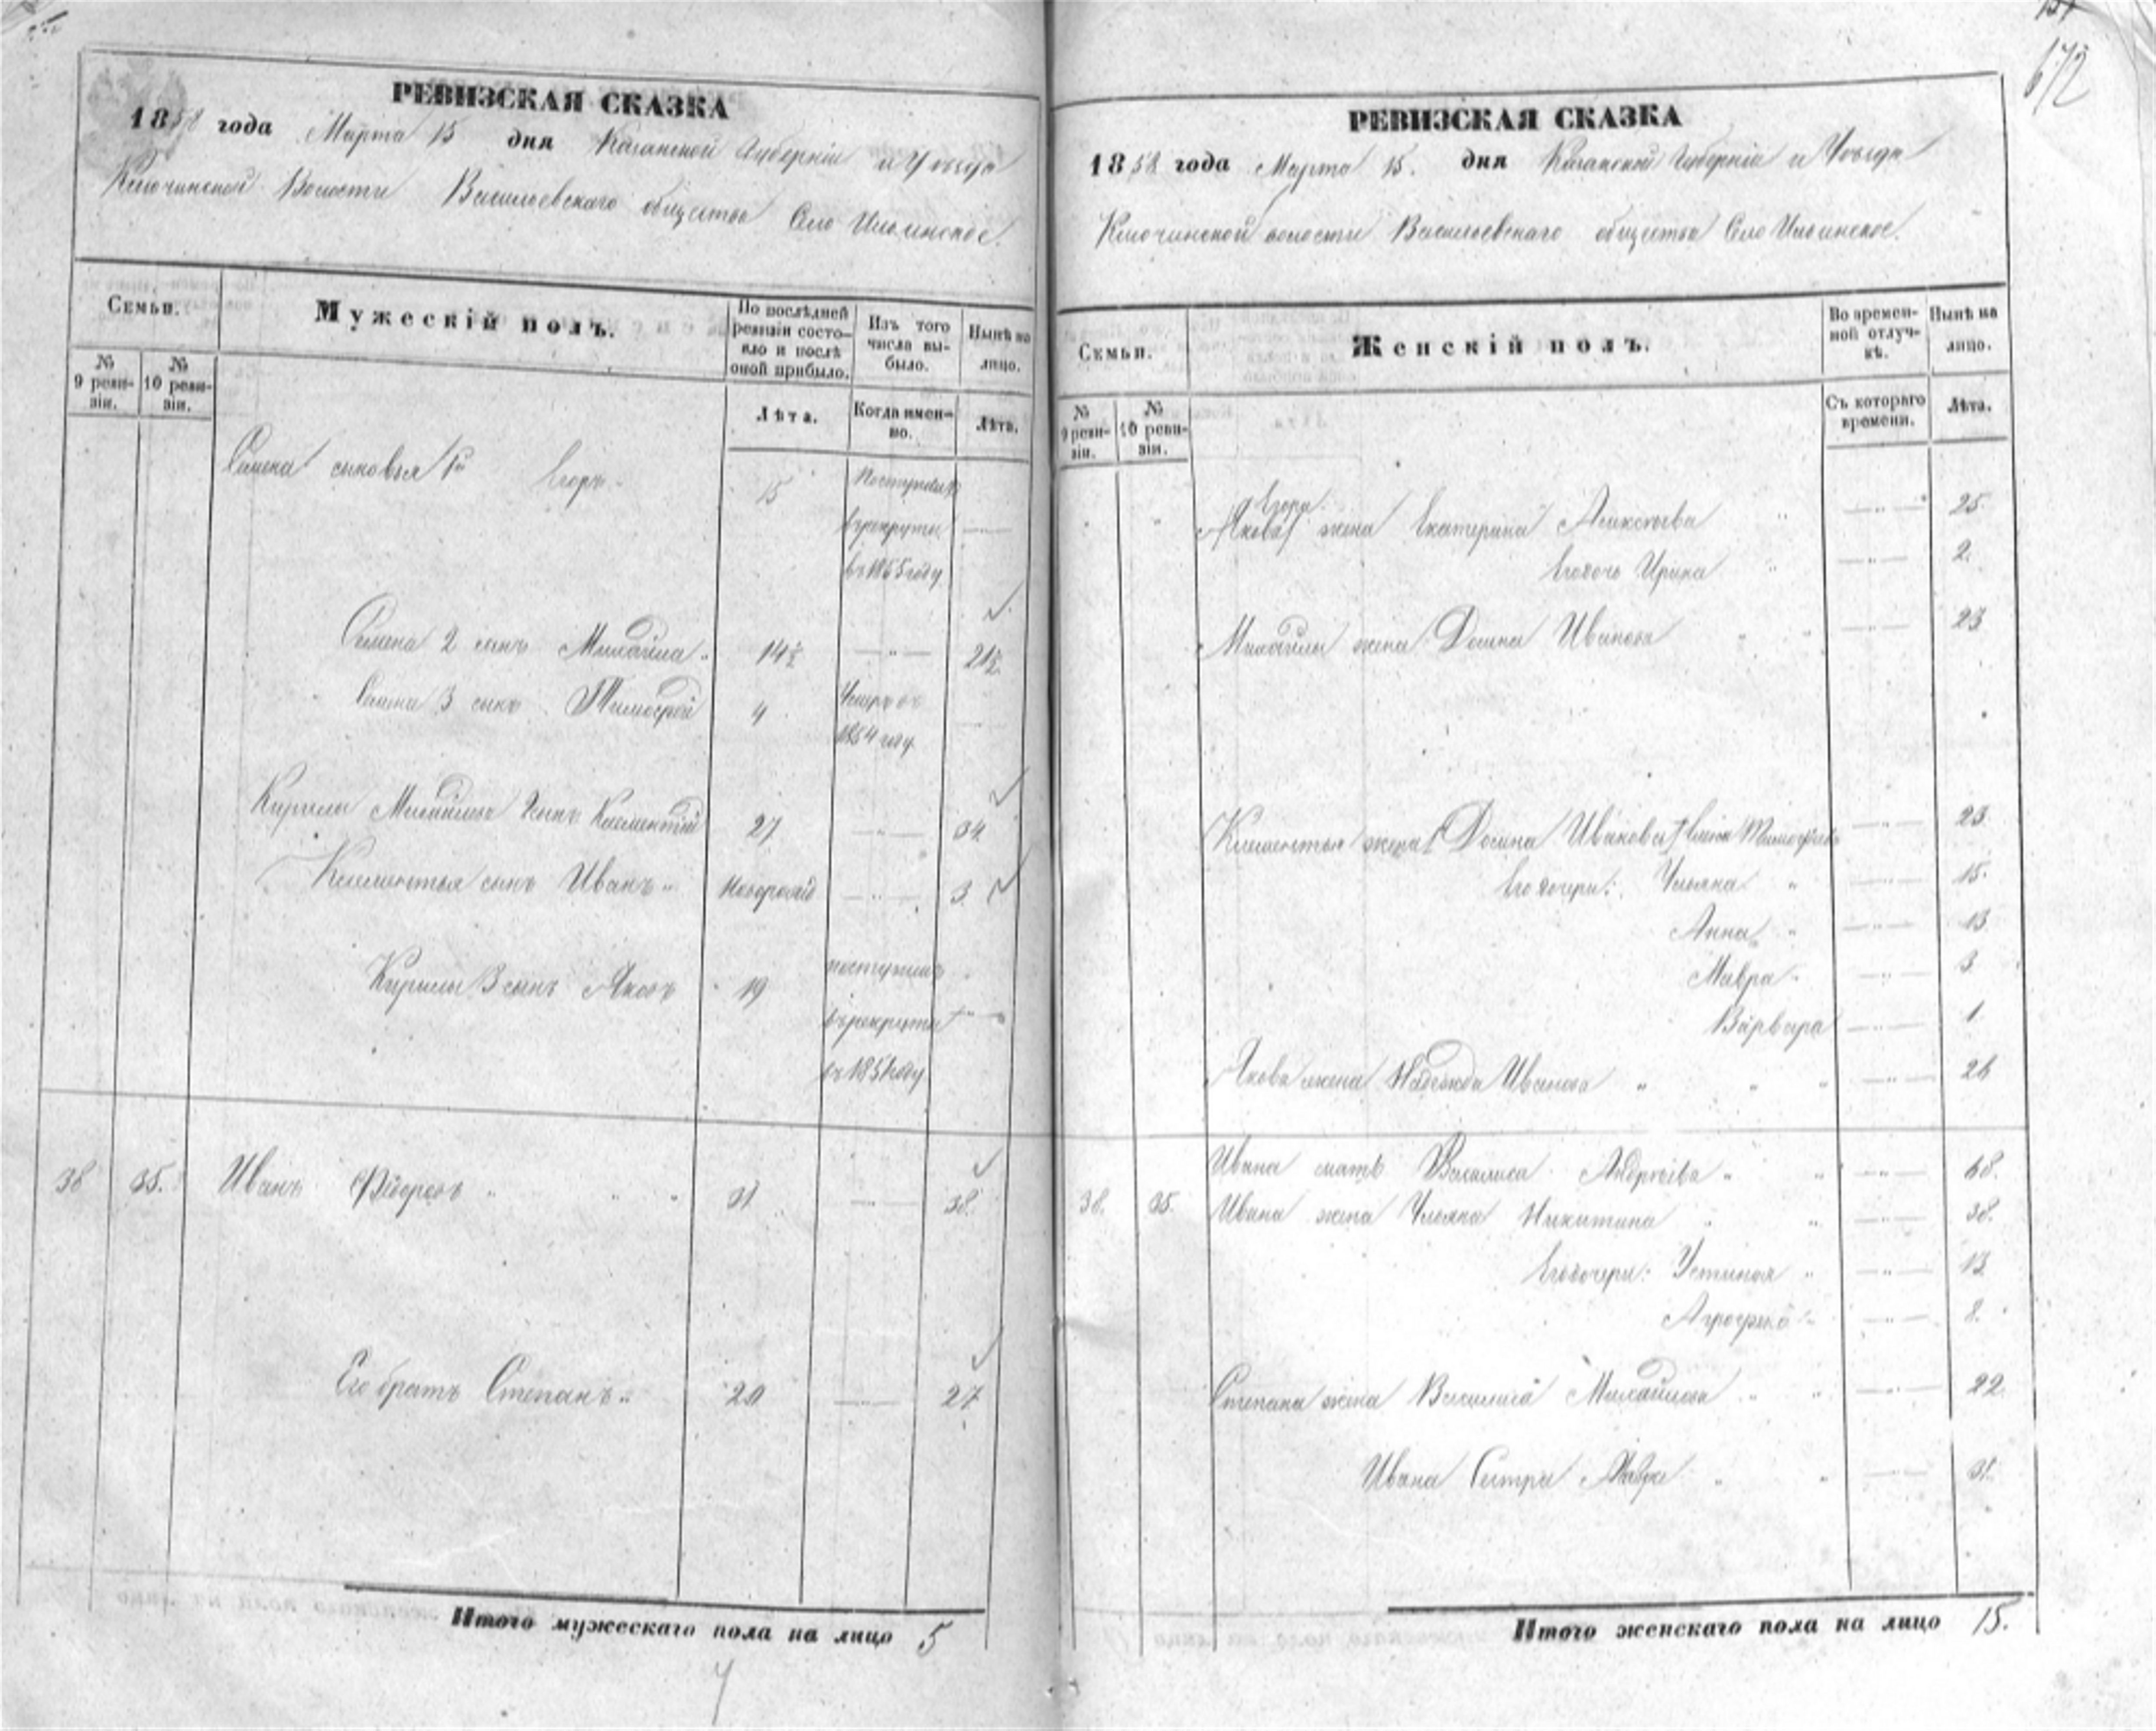 РЕВИЗСКАЯ СКАЗКА
1858 года Марта 15 дня Казанской Губерніи и Уѣзда
Ключинской Волости Васильевскаго общества Село Ильинское.
Семьи.
Мужескій полъ.
По послѣдней ревизіи состояло и послѣ оной прибыло.
Изъ того числа выбыло.
Нынѣ на лицо.
№ 9 ревизіи.
№ 10 ревизіи.
Лѣта.
Когда именно.
Лѣта.
Семена сыновья 1й Егоръ 15 Поступилъ
въ рекруты
въ 1855 году
Семена 2 сынъ Михайла 14½ 21½
Семена 3 сынъ Тимофей 4 Умеръ въ
1854 году
Кирилы Михайлова 2 сынъ Клементій 27 34
Клементья сынъ Иванъ Новорожд 3
Кирилы 3 сынъ Яковъ 19 поступилъ
въ рекруты
въ 1851 году
38 35. Иванъ Федоровъ 31 38.
Его братъ Степанъ 20 27
Итого мужескаго пола на лицо 5
672
РЕВИЗСКАЯ СКАЗКА
1858 года Марта 15. дня Казанской Губерніи и Уѣзда
Ключинской волости Васильевскаго общества Село Ильинское.
Семьи.
Женскій полъ.
Во временной отлучкѣ.
Нынѣ на лицо.
№ 9 ревизіи.
№ 10 ревизіи.
Съ котораго времени.
Лѣта.
Егора
Якова жена Екатерина Алексѣева 25.
Его дочь Ирина 2.
Михайлы жена Домна Иванова 23
Клементья жена Домна Иванова 23.
Его дочери: Ульяна 15.
Анна 13.
Мавра 3
Варвара 1
Якова жена Надежда Иванова 26
Ивана мать Василиса Андреева 68.
38. 35. Ивана жена Ульяна Никитина 38.
Его дочери: Устинья 13
2.
Степана жена Михайлова 22
Ивана Сестра 31.
Итого женскаго пола на лицо 15.